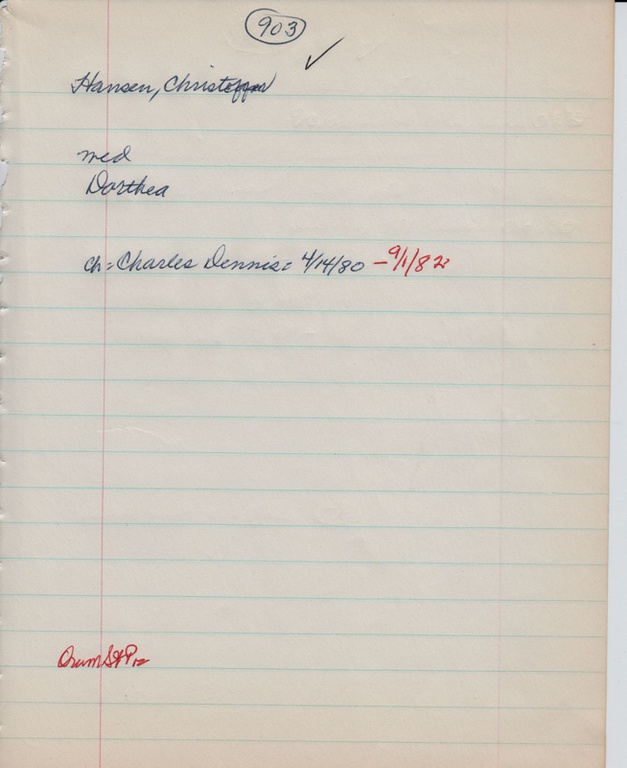 903
Hansen, Christoffer
med
Dorthea
ch: Charles Dennis: 4/14/80 – 9/1/82
Oram